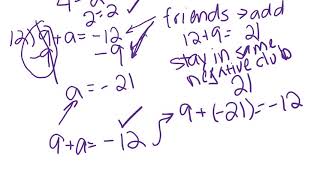 2 = 2 ✓
12) 9 + a = -12
-9 -9 ✓
a = -21
9 + a = -12 ✓
friends → add
12 + 9 = 21
stay in same
negative club
21
9 + (-21) = -12